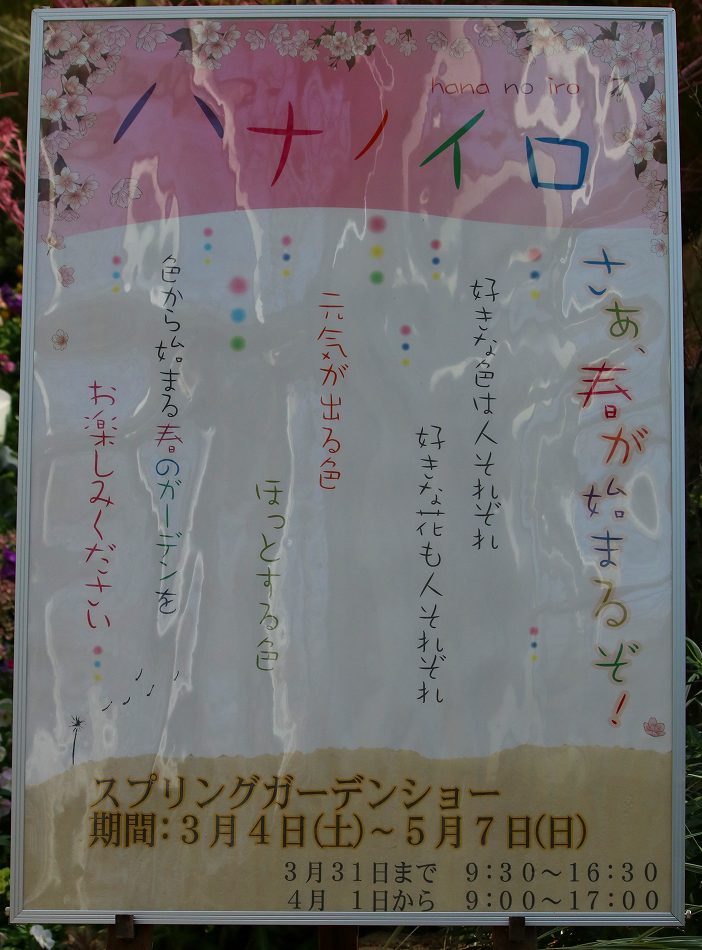 hana no iro
ハナノイロ
さぁ、春が始まるぞ!
好きな色は人それぞれ
好きな花も人それぞれ
元気が出る色
ほっとする色
色から始まる春のガーデンを
お楽しみください
スプリングガーデンショー
期間:3月4日(土)~5月7日(日)
3月31日まで 9:30~16:30
4月 1日から 9:00~17:00